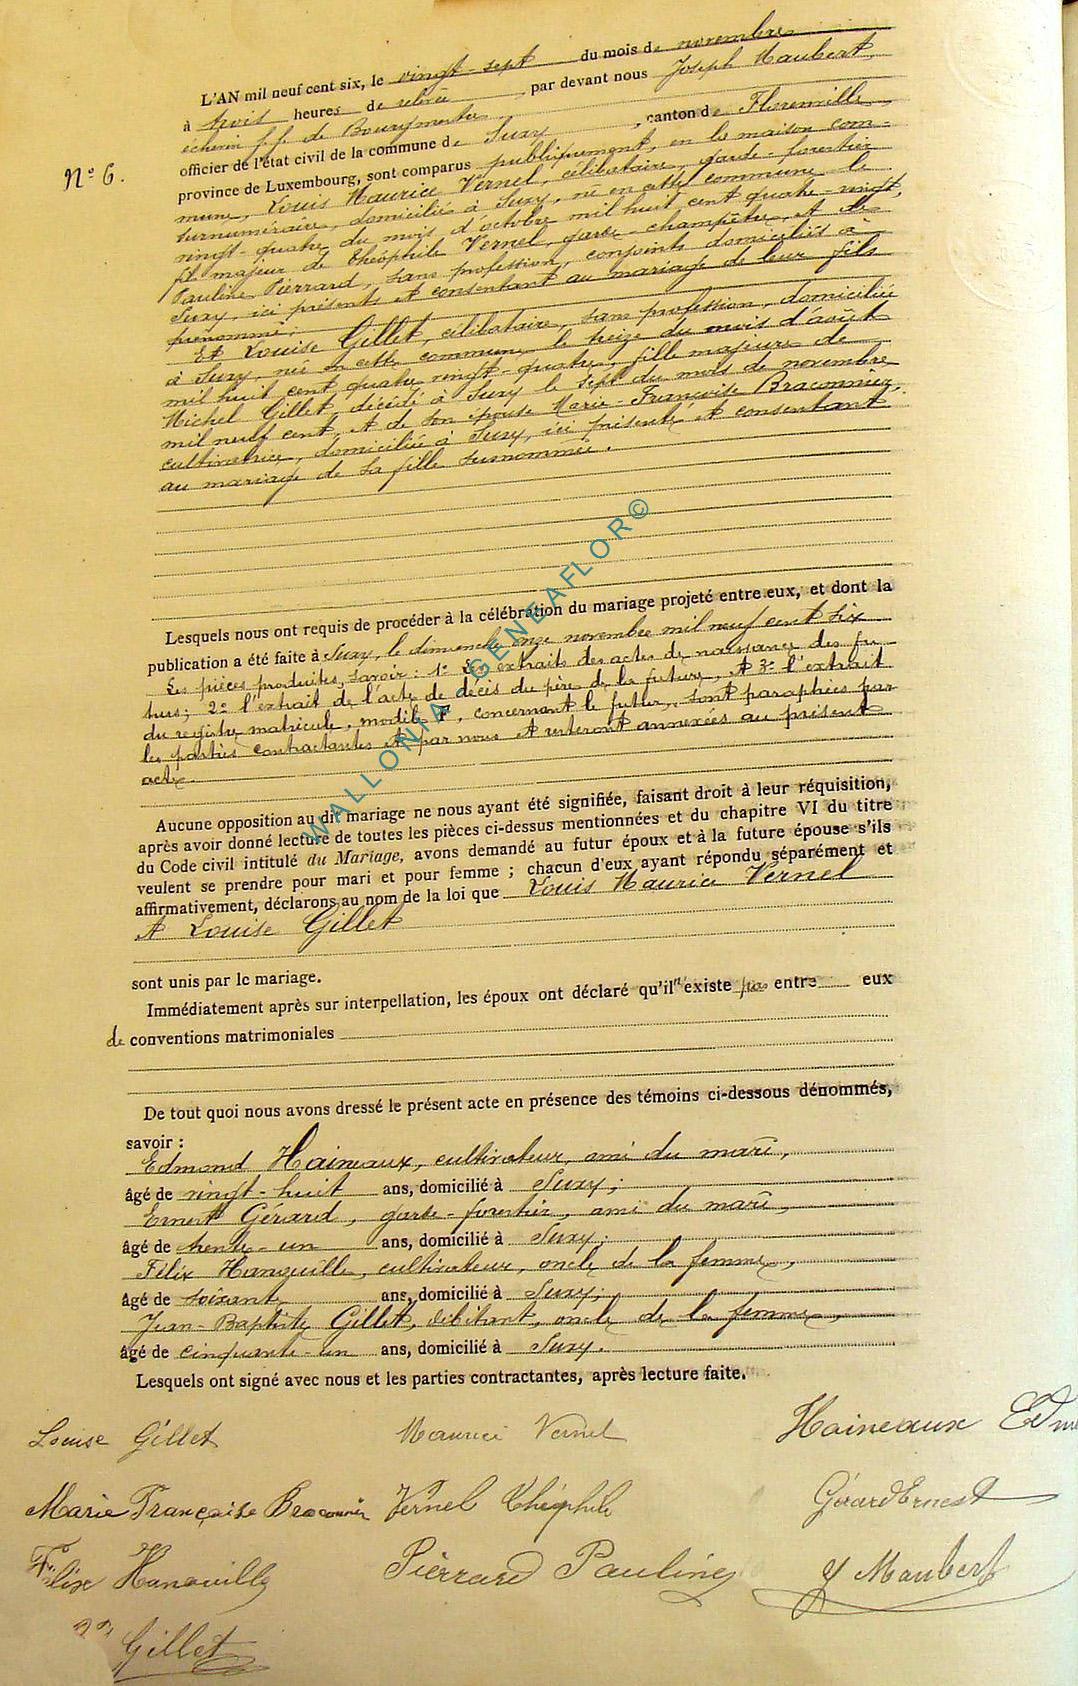 L'AN mil neuf cent six, le vingt-sept du mois de novembre
à trois heures de relevée, par devant nous Joseph Maubert,
échevin f.f. de Bourgmestre
officier de l'état civil de la commune de Suxy, canton de Florenville
N° 6.
province de Luxembourg, sont comparus publiquement, en la maison com-
mune, Louis Maurice Vernel, célibataire, garde-forestier
surnuméraire, domicilié à Suxy, né en cette commune le
vingt-quatre du mois d'octobre mil huit cent quatre-vingt,
fils majeur de Théophile Vernel, garde-champêtre, et de
Pauline Pierrard, sans profession, conjoints domiciliés à
Suxy, ici présents et consentant au mariage de leur fils
prénommé;
Et Louise Gillet, célibataire, sans profession, domiciliée
à Suxy, née en cette commune le treize du mois d'août
mil huit cent quatre vingt-quatre, fille majeure de
Michel Gillet, décédé à Suxy le sept du mois de novembre
mil neuf cent, et de son épouse Marie-Françoise Braconnier,
cultivatrice, domiciliée à Suxy, ici présente et consentant
au mariage de sa fille susnommée.
Lesquels nous ont requis de procéder à la célébration du mariage projeté entre eux, et dont la
publication a été faite à Suxy, le dimanche onze novembre mil neuf cent six
Les pièces produites, savoir: 1° les extraits des actes de naissance des fu-
turs; 2° l'extrait de l'acte de décès du père de la future, et 3° l'extrait
du registre matricule, modèle F, concernant le futur, sont paraphées par
les parties contractantes et par nous et resteront annexées au présent
acte.
Aucune opposition au dit mariage ne nous ayant été signifiée, faisant droit à leur réquisition,
après avoir donné lecture de toutes les pièces ci-dessus mentionnées et du chapitre VI du titre
du Code civil intitulé du Mariage, avons demandé au futur époux et à la future épouse s'ils
veulent se prendre pour mari et pour femme; chacun d'eux ayant répondu séparément et
affirmativement, déclarons au nom de la loi que Louis Maurice Vernel
et Louise Gillet
sont unis par le mariage.
Immédiatement après sur interpellation, les époux ont déclaré qu'il n'existe pas entre eux
de conventions matrimoniales
De tout quoi nous avons dressé le présent acte en présence des témoins ci-dessous dénommés,
savoir :
Edmond Haineaux, cultivateur, ami du mari,
âgé de vingt-huit ans, domicilié à Suxy;
Ernest Gérard, garde-forestier, ami du mari,
âgé de trente-un ans, domicilié à Suxy;
Félix Hanouille, cultivateur, oncle de la femme,
âgé de soixante ans, domicilié à Suxy;
Jean-Baptiste Gillet, débitant, oncle de la femme,
âgé de cinquante-un ans, domicilié à Suxy.
Lesquels ont signé avec nous et les parties contractantes, après lecture faite.
Louise Gillet Maurice Vernel Haineaux Edm
Marie Françoise Braconnier Vernel Théophile Gérard Ernest
Félix Hanouille Pierrard Pauline J Maubert
Gillet
WALLONIA GENEAFLOR©